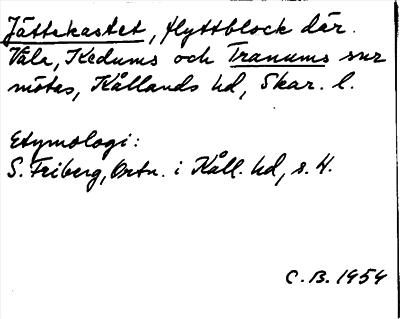 Jättekastet, flyttblock där
Våla, Kedums och Tranums snr
mötas, Kållands hd, Skar. l.
Etymologi:
S. Friberg, Ortn. i Kåll. hd, s. 4.
C. B. 1954